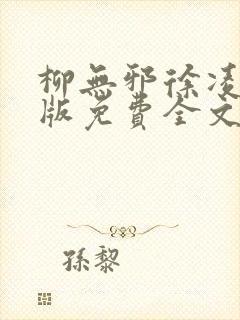 柳無邪徐凌
版免費全文
孫黎